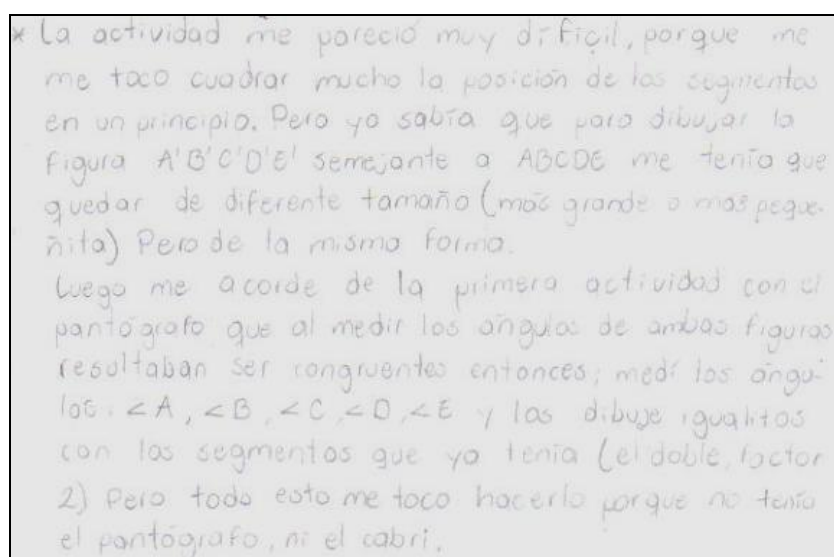 * La actividad me pareció muy difiçil, porque me
me toco cuadrar mucho la posición de los segmentos
en un principio. Pero yo sabía que para dibujar la
figura A'B'C'D'E' semejante a ABCDE me tenía que
quedar de diferente tamaño (más grande o mas peque-
ñita) Pero de la misma forma.
Luego me acorde de la primera actividad con el
pantógrafo que al medir los ángulos de ambas figuras
resultaban ser congruentes entonces; medí los ángu-
los: ∠A, ∠B, ∠C, ∠D, ∠E y los dibuje igualitos
con los segmentos que ya tenía (el doble, factor
2) Pero todo esto me toco hacerlo porque no tenía
el pantógrafo, ni el cabri.